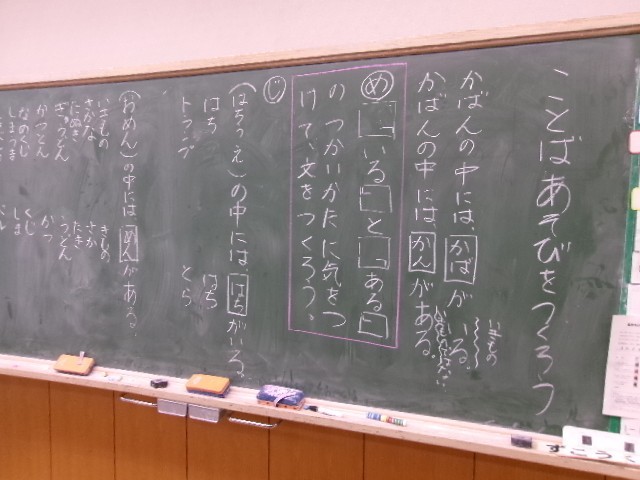 ことばあそびをつくろう
かばんの中には、かばがいる。
いきもの
かばんの中には、かんがある。
め「いる」と「ある」
のつかいかたに気をつ
けて、文をつくろう。
じ
(はちうえ)の中には、はちがいる。
はち はち
トランプ とら
(わめん)の中には、めんがある。
いきもの きもの
さかな さか
にぬき たき
ぎゅうどん うどん
かつどん かつ
なめくじ くじ
しまうま しま